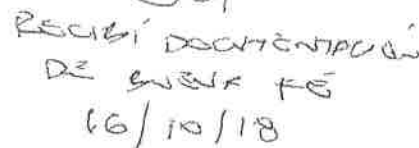 RECIBÍ DOCUMENTACIÓN
DE BUENA FÉ
16/10/18